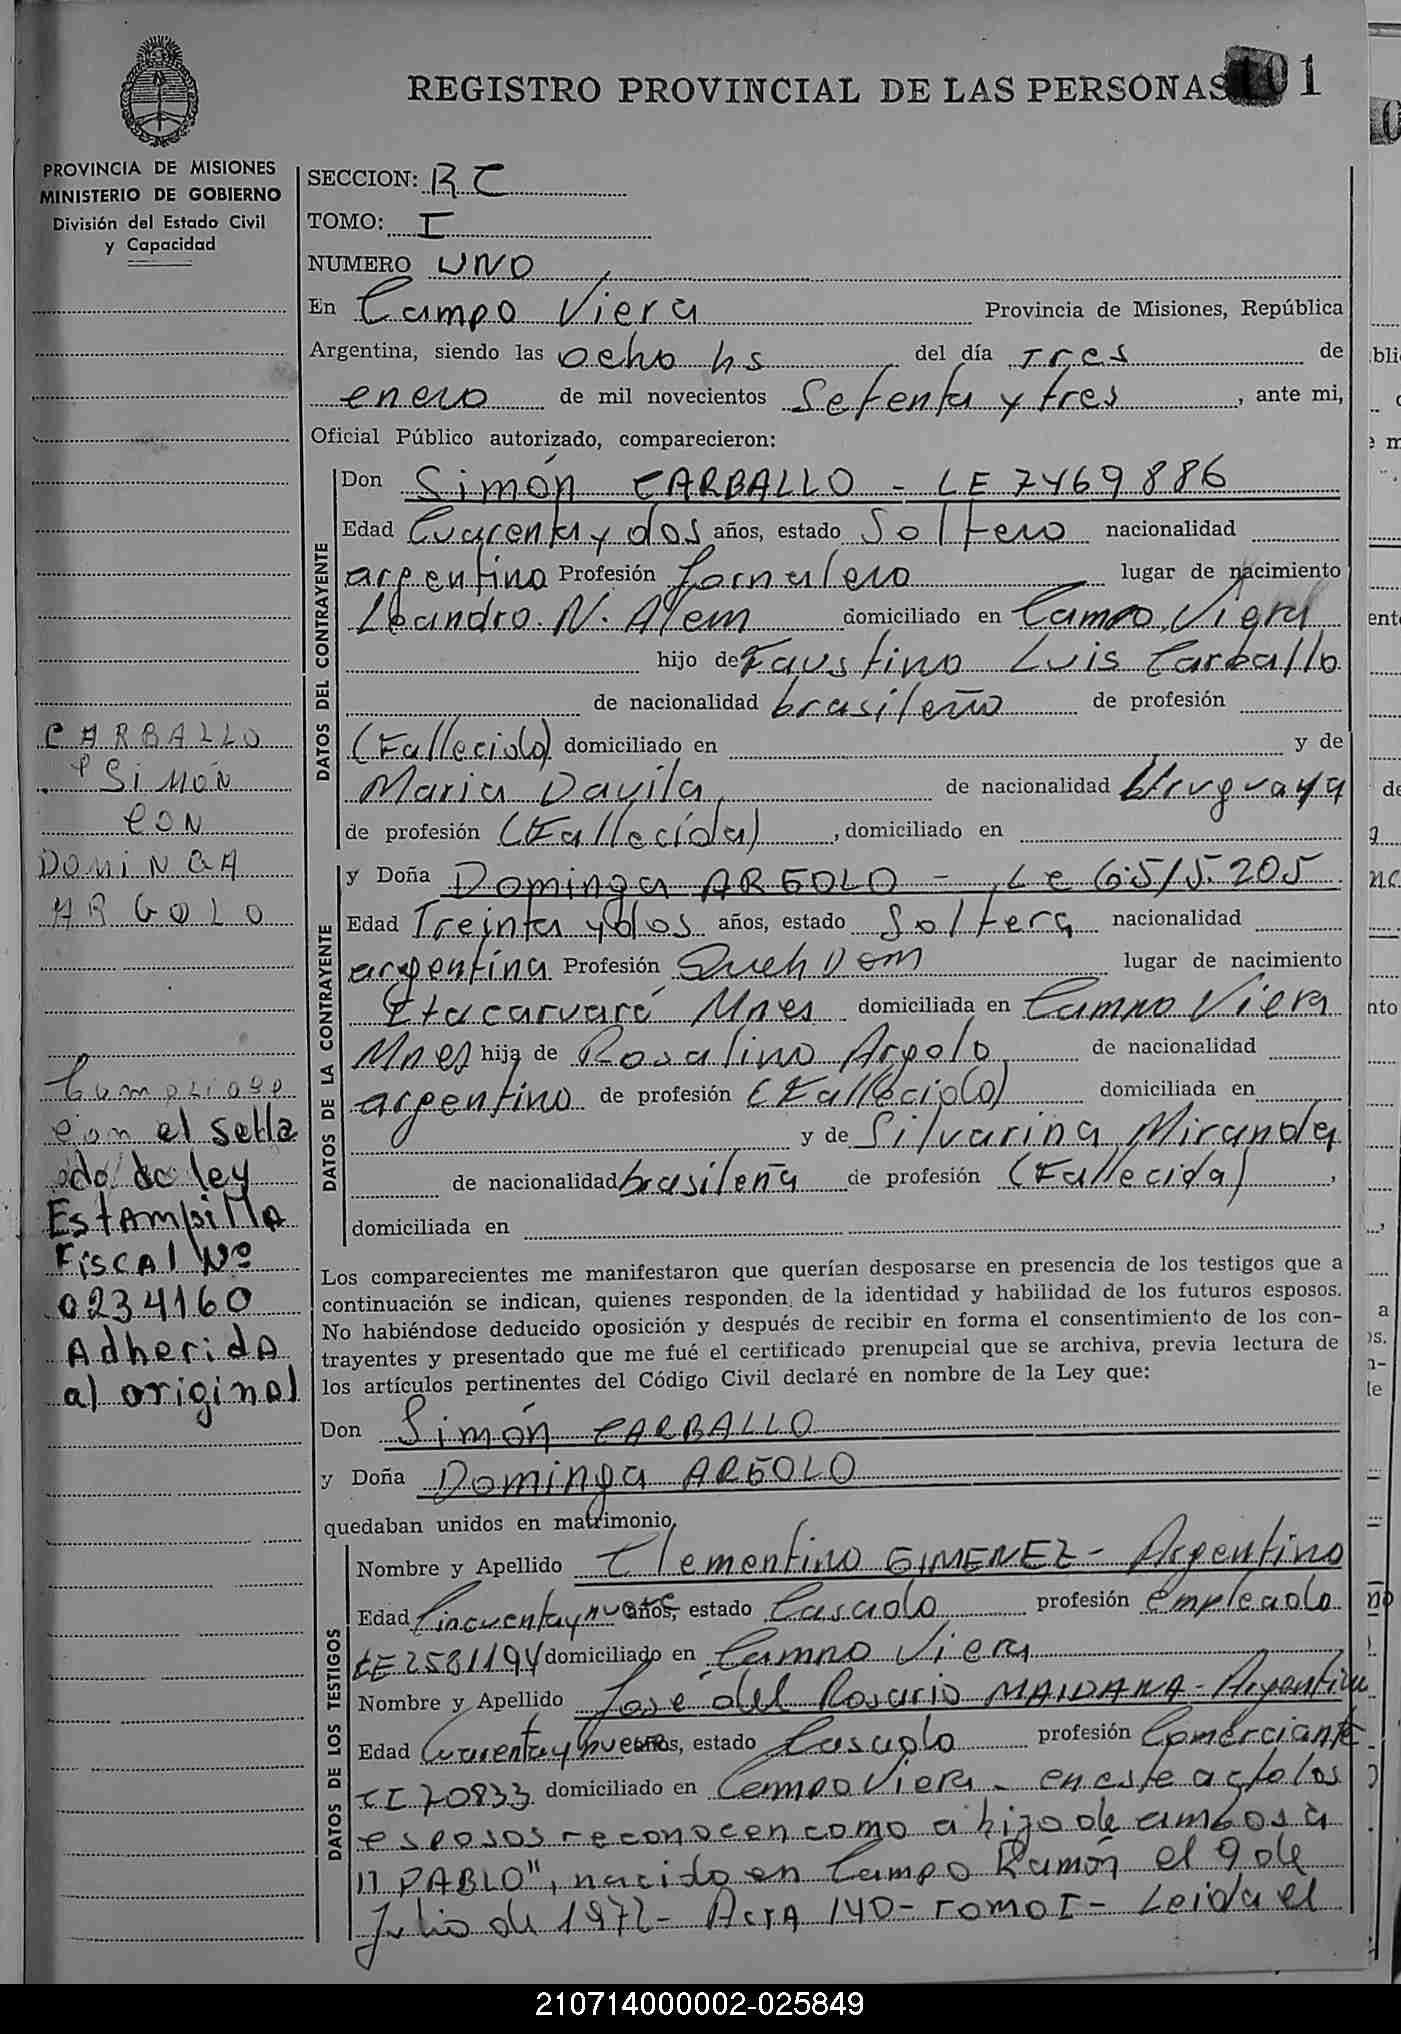 REGISTRO PROVINCIAL DE LAS PERSONAS
101
PROVINCIA DE MISIONES
MINISTERIO DE GOBIERNO
División del Estado Civil
y Capacidad
SECCION: RC
TOMO: I
NUMERO UNO
En Campo Viera Provincia de Misiones, República
Argentina, siendo las ocho hs del día tres de
enero de mil novecientos Setenta y tres, ante mi,
Oficial Público autorizado, comparecieron:
DATOS DEL CONTRAYENTE
Don Simón CARBALLO - LE 7469886
Edad Cuarenta y dos años, estado Soltero nacionalidad
argentino Profesión Jornalero lugar de nacimiento
Leandro N. Alem domiciliado en Campo Viera
hijo de Faustino Luis Carballo
de nacionalidad brasileño de profesión
(Fallecido) domiciliado en y de
Maria Davila de nacionalidad Uruguaya
de profesión (Fallecída), domiciliado en
DATOS DE LA CONTRAYENTE
y Doña Dominga ARGOLO - Le 6.515.205
Edad Treinta y dos años, estado Soltera nacionalidad
argentina Profesión Queh Dom lugar de nacimiento
Itacaruaré Mnes domiciliada en Campo Viera
Mnes hija de Rosalino Argolo de nacionalidad
argentino de profesión (Fallecido) domiciliada en
y de Silvarina Miranda
de nacionalidad brasileña de profesión (Fallecida),
domiciliada en
Los comparecientes me manifestaron que querían desposarse en presencia de los testigos que a
continuación se indican, quienes responden de la identidad y habilidad de los futuros esposos.
No habiéndose deducido oposición y después de recibir en forma el consentimiento de los con-
trayentes y presentado que me fué el certificado prenupcial que se archiva, previa lectura de
los artículos pertinentes del Código Civil declaré en nombre de la Ley que:
Don Simón CARBALLO
y Doña Dominga ARGOLO
quedaban unidos en matrimonio,
DATOS DE LOS TESTIGOS
Nombre y Apellido Clementino GIMENEZ - Argentino
Edad Cincuenta y nueve años, estado Casado profesión empleado
LE 2581194 domiciliado en Campo Viera
Nombre y Apellido José del Rosario MAIDANA - Argentino
Edad Cuarenta y nueve años, estado Casado profesión Comerciante
CI 70833 domiciliado en Campo Viera - en este acto los
esposos reconocen como a hijo de ambos a
"PABLO", nacido en Campo Ramón el 9 de
Julio de 1972 - Acta 140 - Tomo I - Leida el
CARBALLO
SIMÓN
CON
DOMINGA
ARGOLO
con el sella
do de ley
Estampilla
Fiscal Nº
0234160
Adherida
al original
210714000002-025849